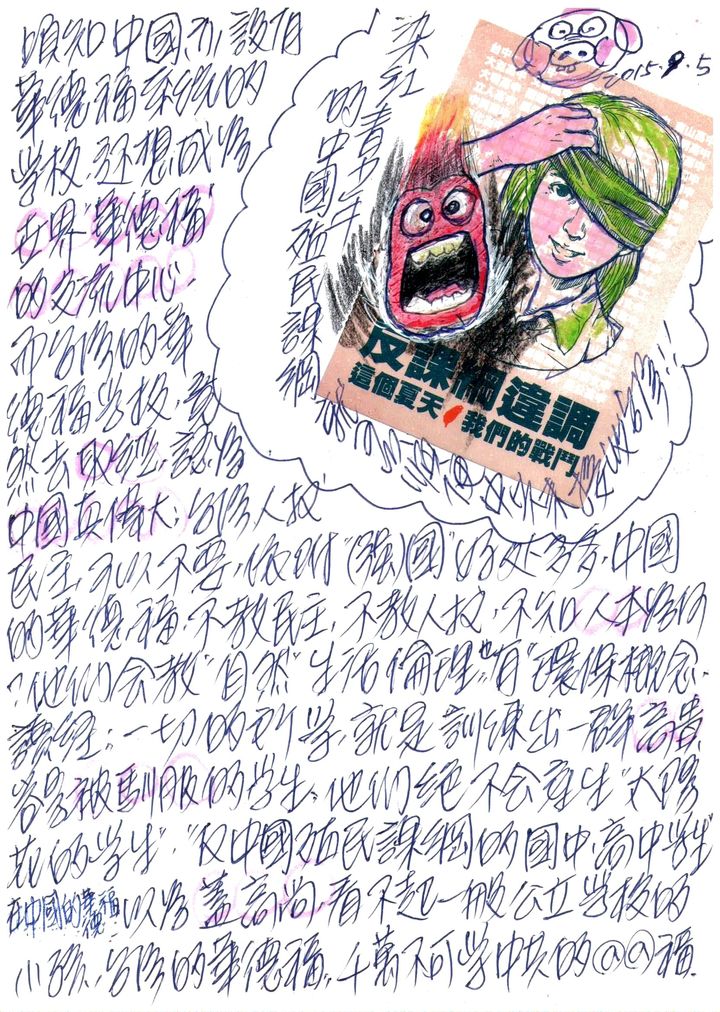 2015.9.5
染紅青少年
的中國殖民課綱
反課綱違調
這個夏天 我們的戰鬥
頃知中國亦設有
華德福系統的
学校,还想成為
世界"華德福"
的交流中心.
而台湾的華
德福学校,
然去取经,認為
中國真偉大,台湾人权
民主,可以不要,依附"(強)國"好处多多,中國
的華德福,不教民主,不教人权,不知人本為何
?他们会教"自然"生活倫理,也有"環保概念.
讀经,一切的所学,就是訓練出一群高貴
容易被馴服的学生.他们绝不会產生"太陽
花的学生","反中國殖民課綱的國中,高中学生"
在中國的華德福以為蓋高尚,看不起一般公立学校的
小孩,台湾的華德福,千萬不可学中共的@@福.